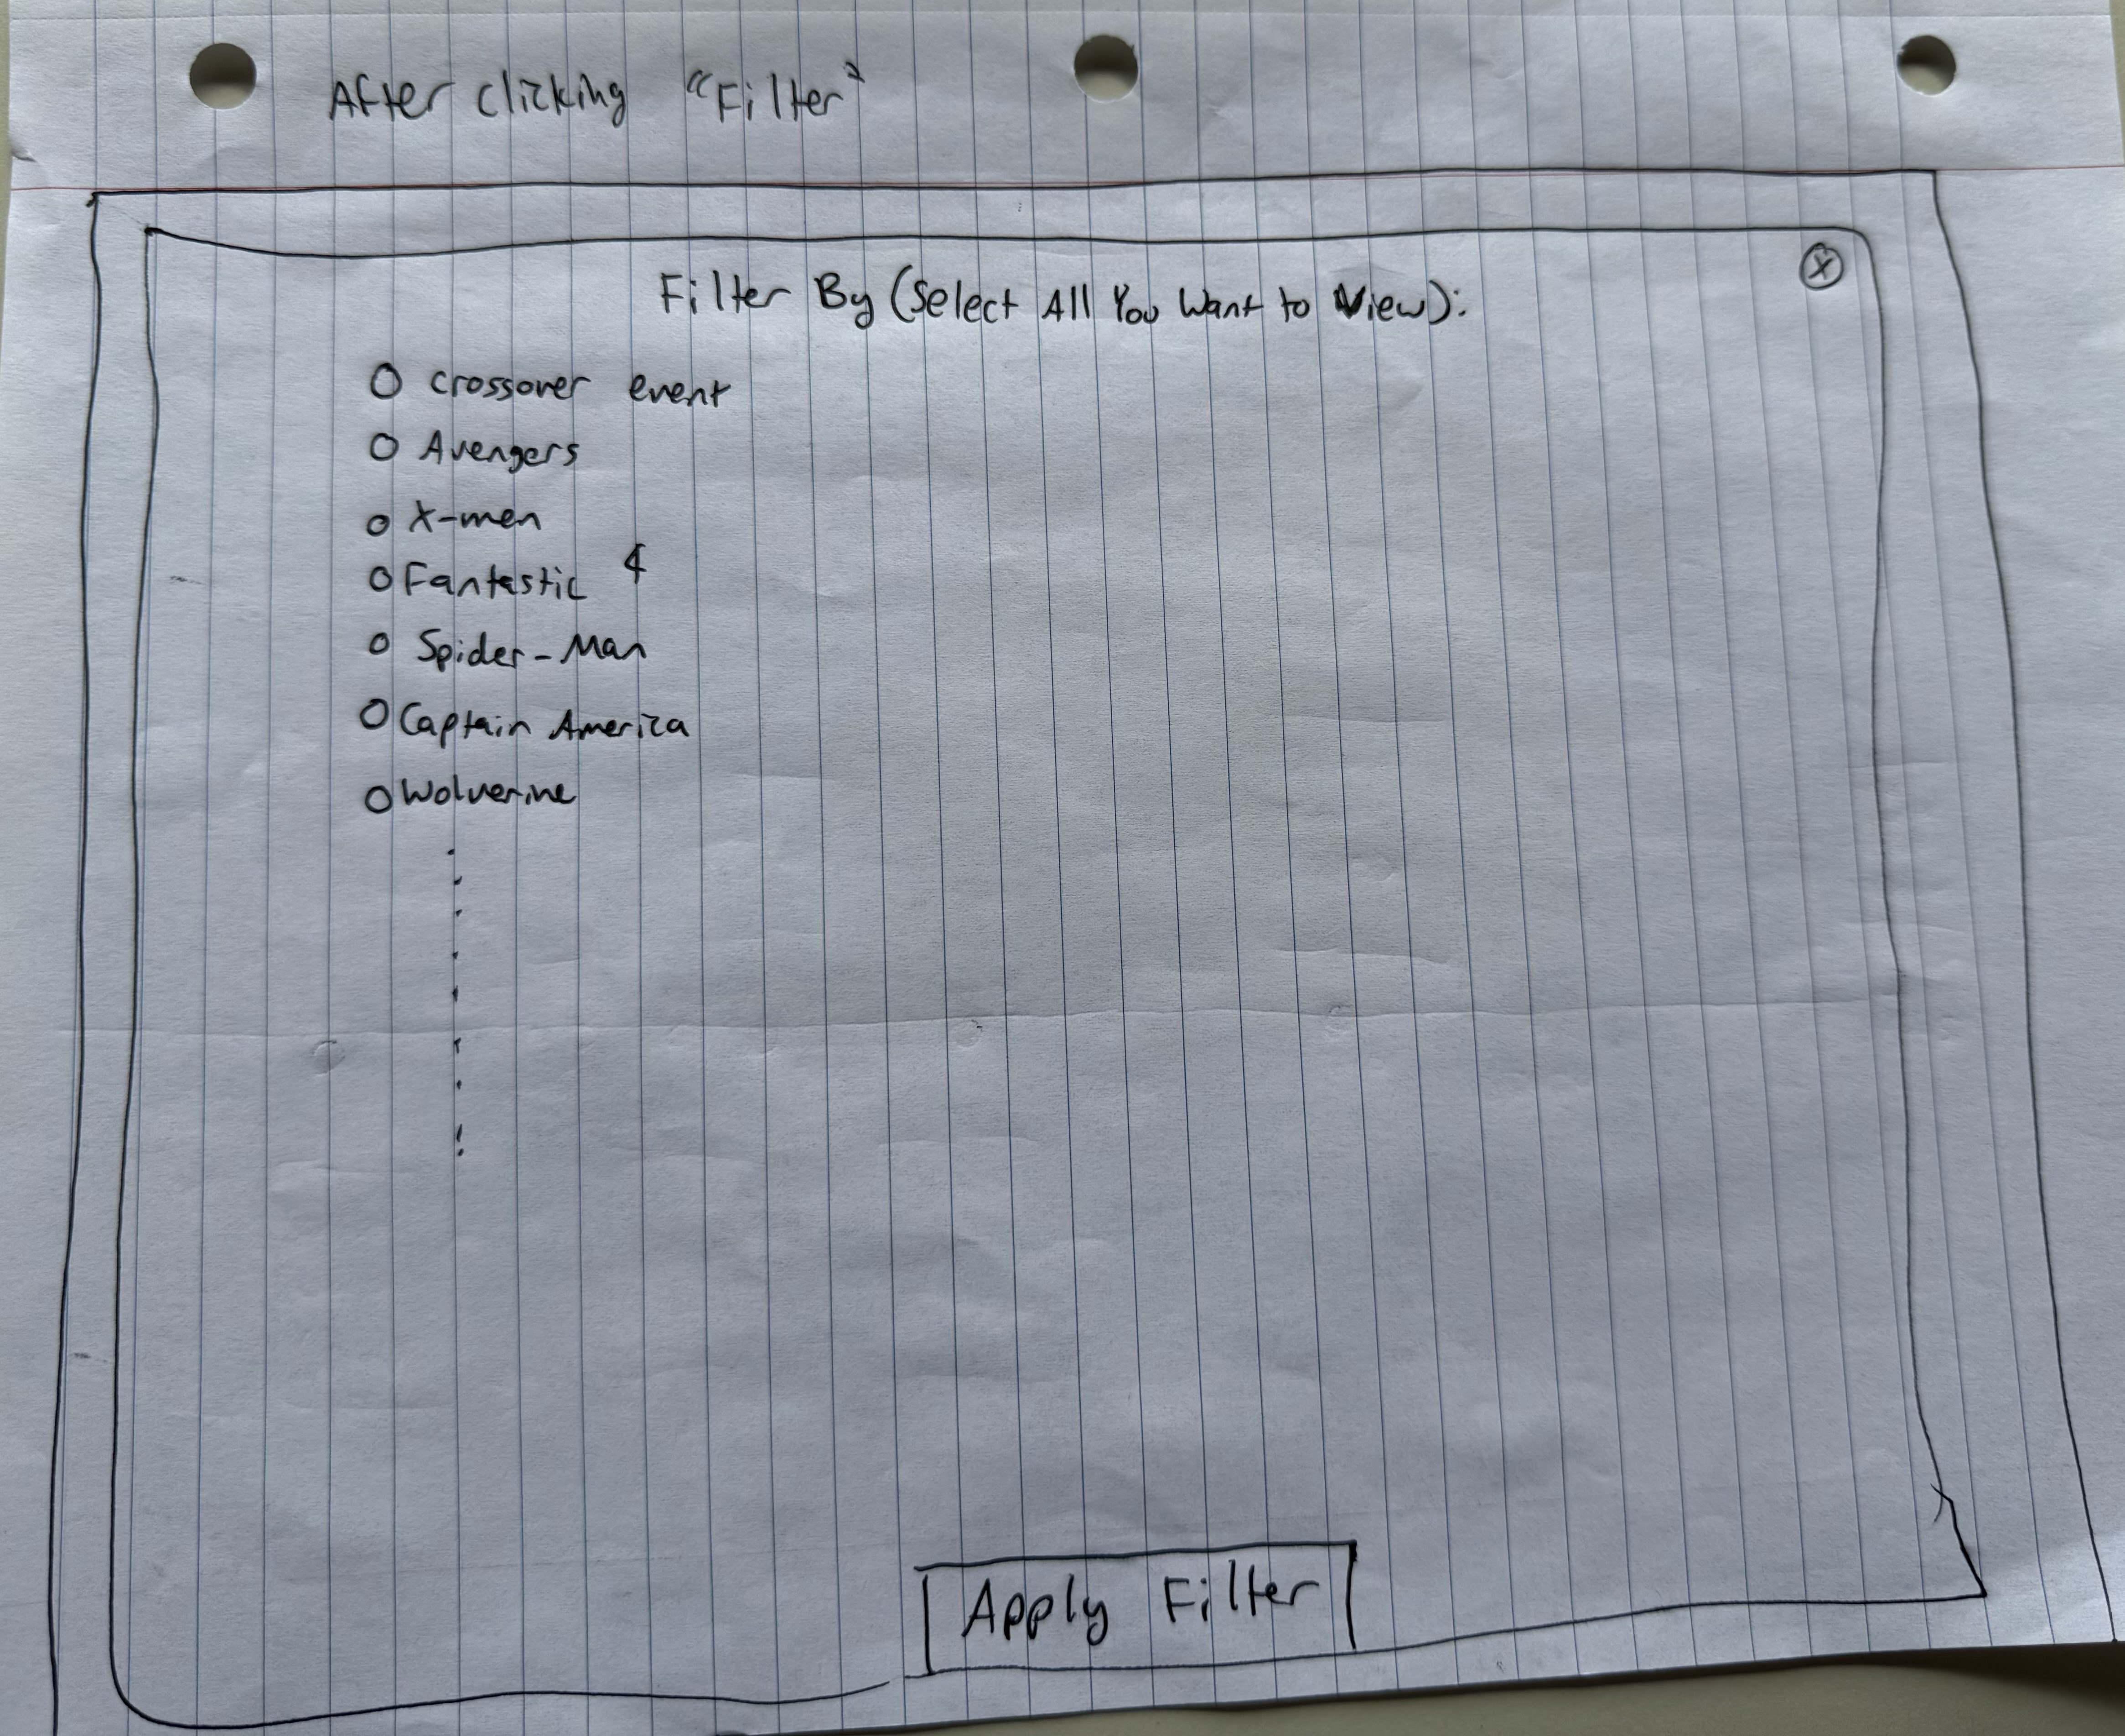 After clicking "Filter"
Filter By (Select All You Want to View):
crossover event
Avengers
X-men
Fantastic 4
Spider-Man
Captain America
Wolverine
Apply Filter